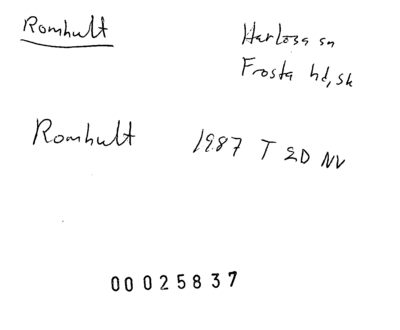 Romhult
Harlösa sn
Frosta hd, sk
Romhult 1987 T ED NV
00025837